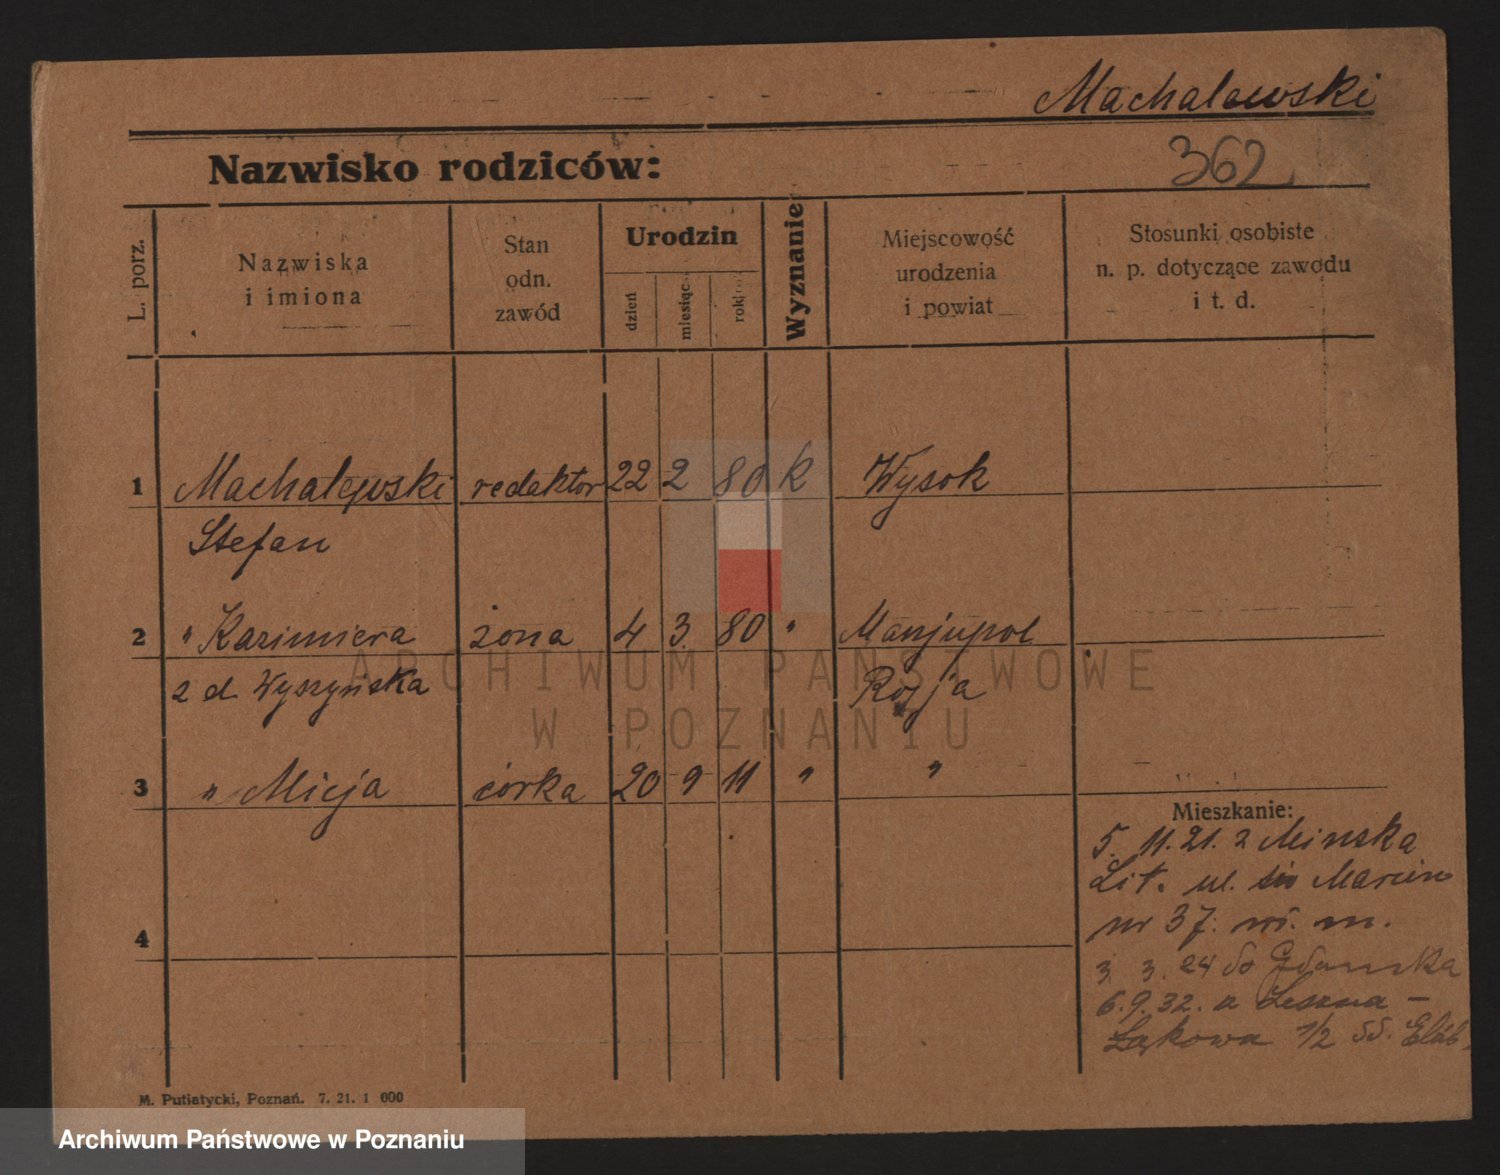 Machalewski
Nazwisko rodziców:
362
L. porz.
Nazwiska
i imiona
Stan
odn.
zawód
Urodzin
dzień
miesiąc
rok
Wyznanie
Miejscowość
urodzenia
i powiat
Stosunki osobiste
n. p. dotyczące zawodu
i t. d.
1 Machalewski redaktor 22 2 80 k Wysok
Stefan
2 " Kazimiera żona 4 3 80 " Manjupol
z d. Wyszyńska Rosja
3 " Micja córka 20 9 11 " "
Mieszkanie:
5. 11. 21. z Minska
Lit. ul. Marcin
nr 37. m.
4
3. 3. 24 do Gdańska
6. 9. 32. z Leszna –
Łąkowa 1/2
M. Putiatycki, Poznań. 7. 21. 1 000
ARCHIWUM PAŃSTWOWE
W POZNANIU
Archiwum Państwowe w Poznaniu